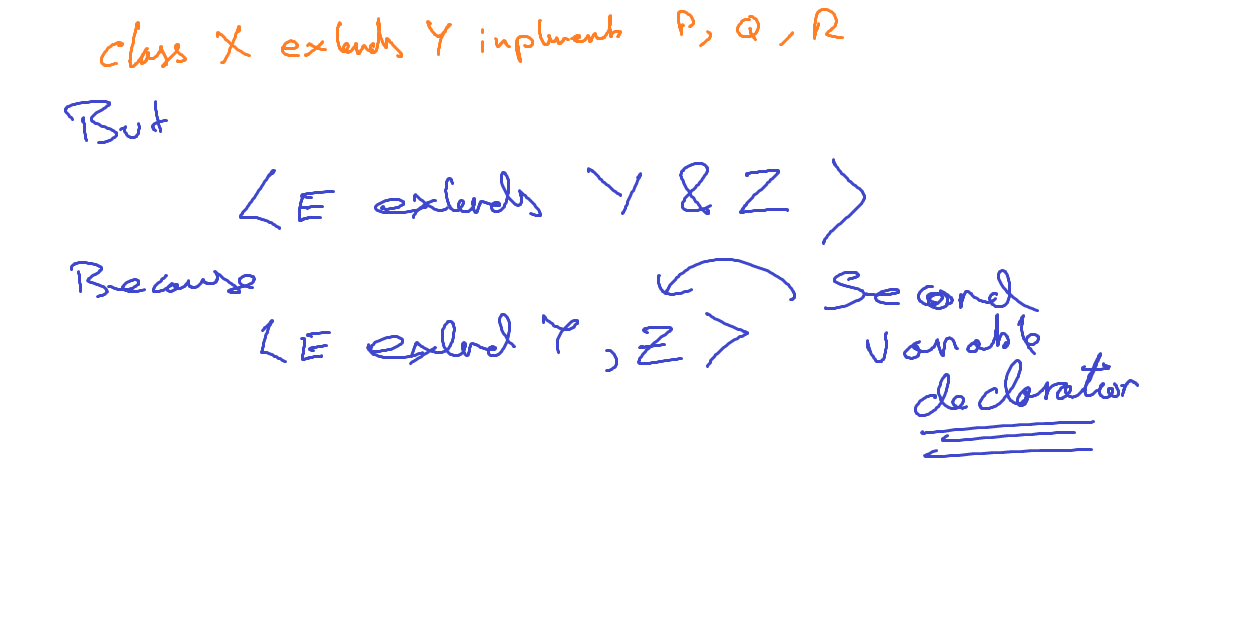 class X extends Y implements P, Q, R
But
<E extends Y & Z>
Because
<E extend Y, Z>
Second
variable
declaration